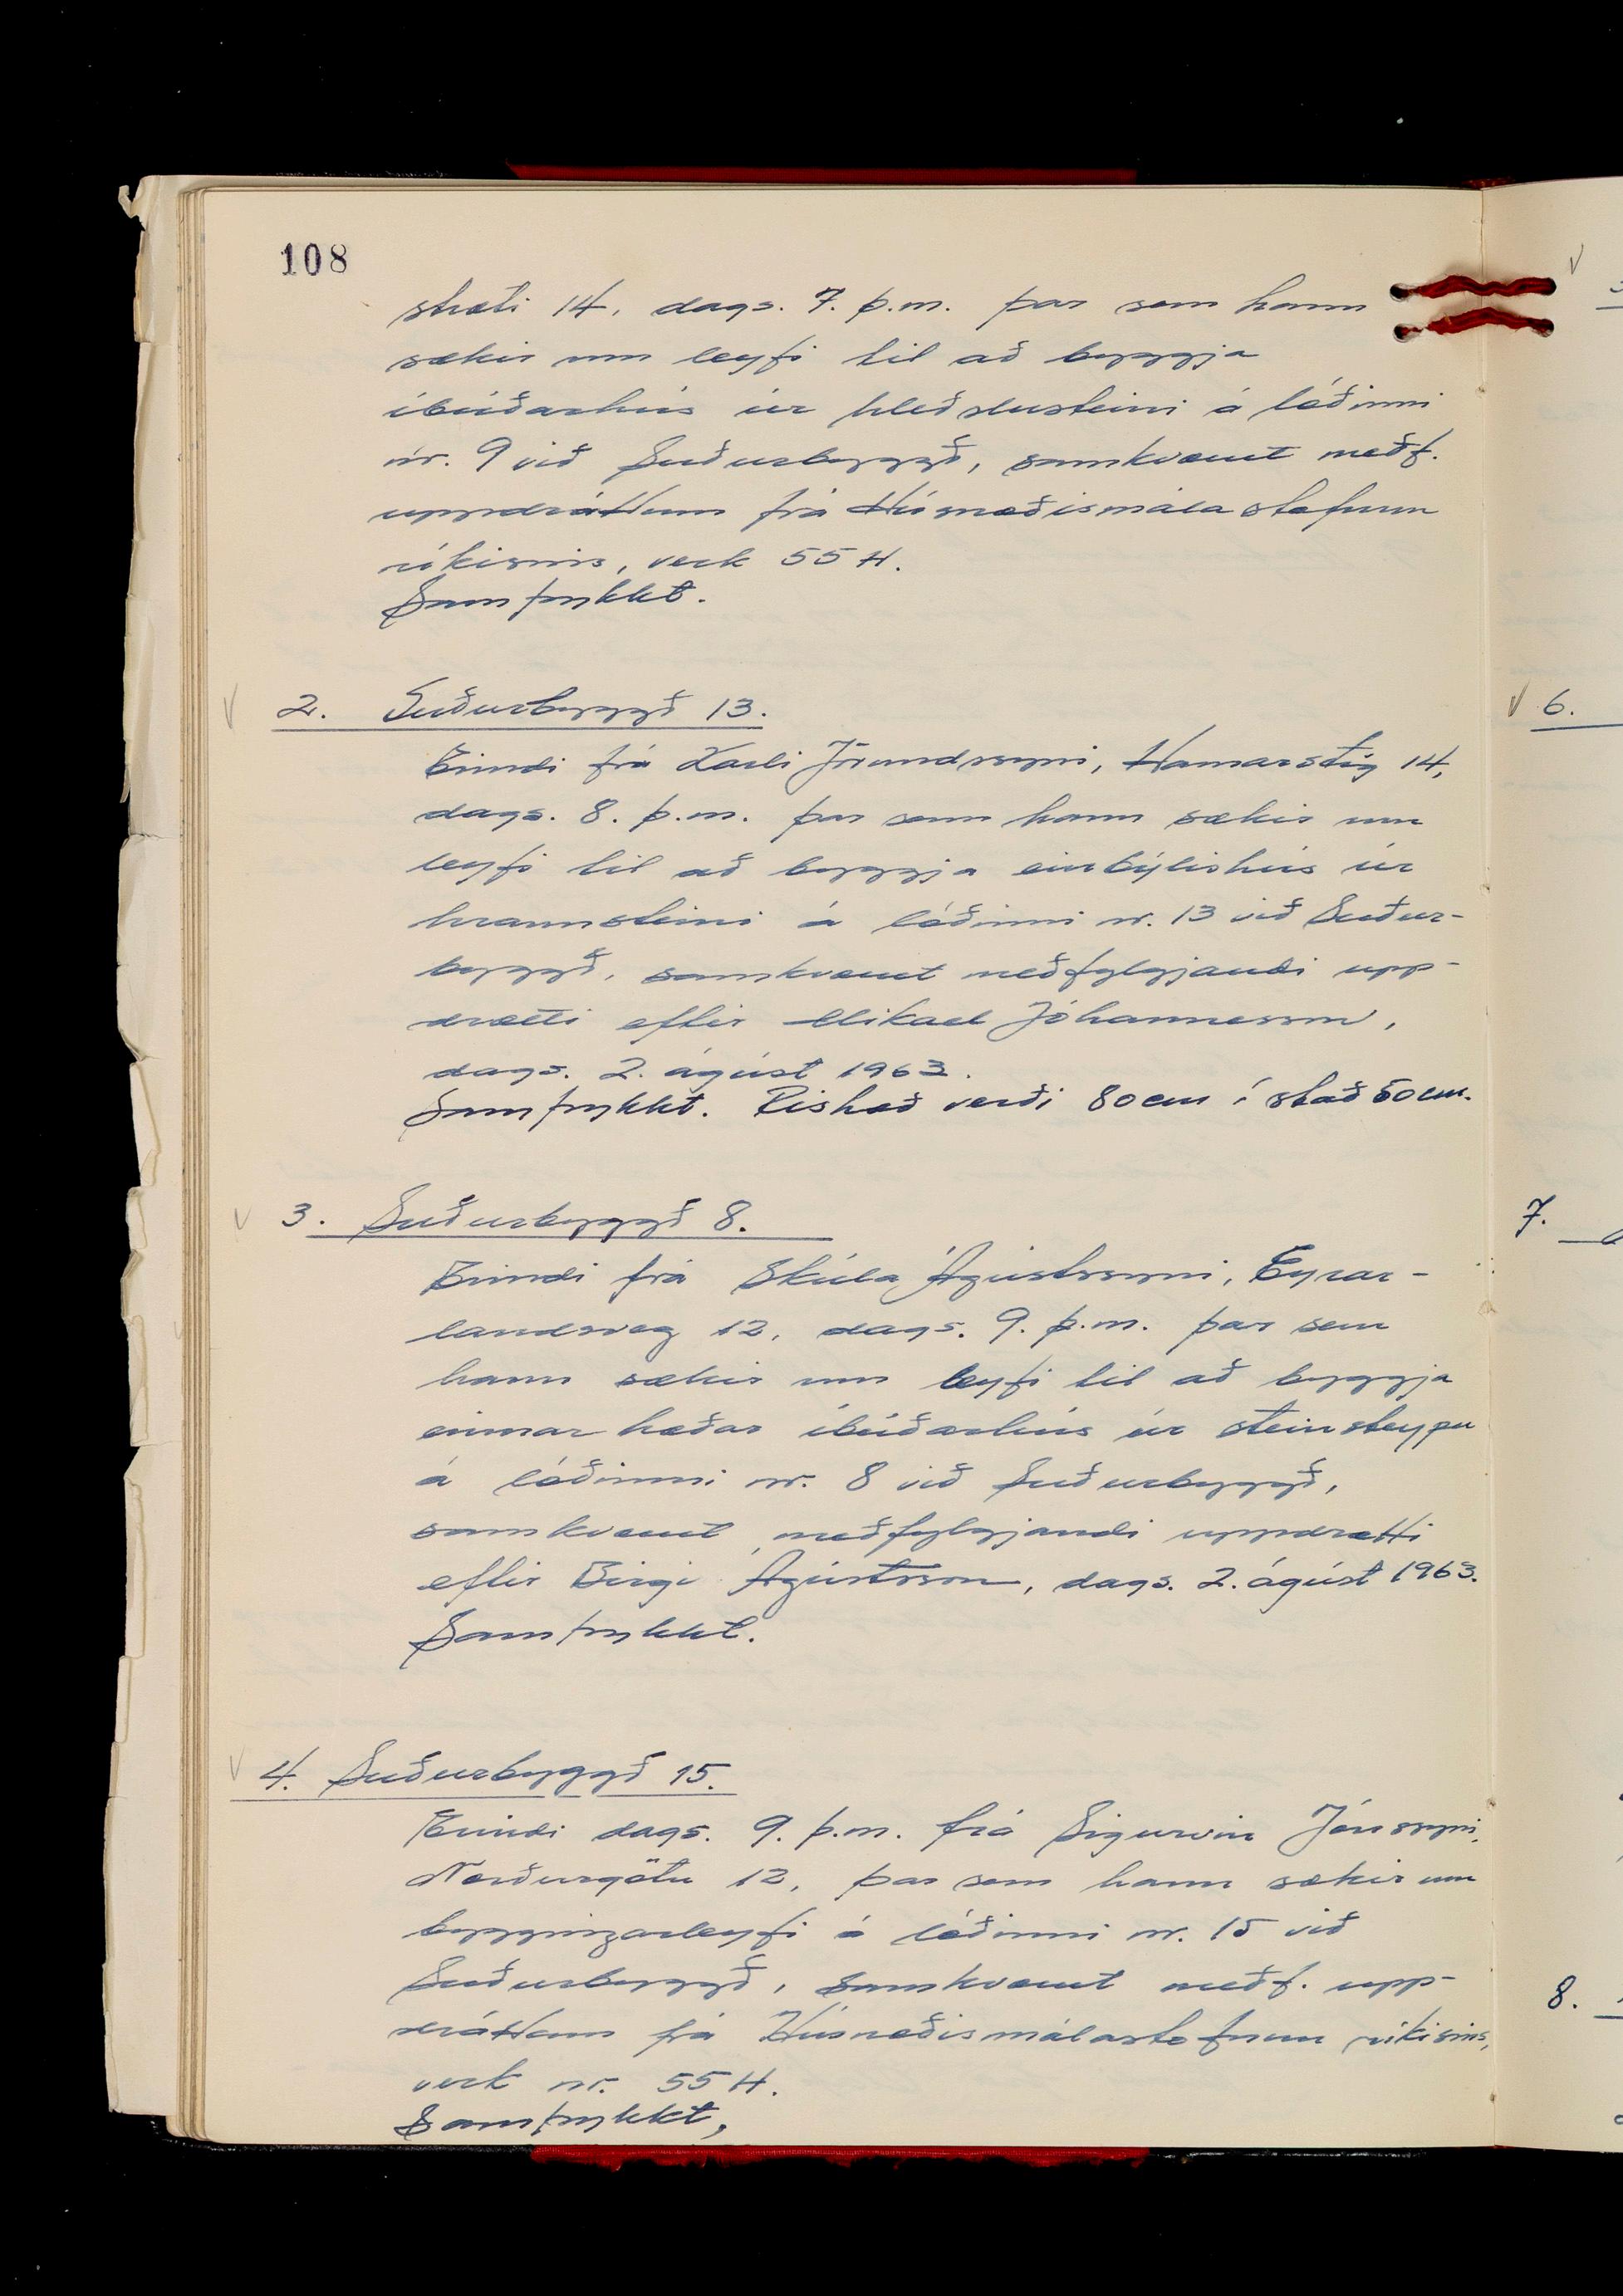 108
stræti 14, dags. 7. þ.m. þar sem hann
sækir um leyfi til að byggja
íbúðarhús úr hleðslusteini á lóðinni
nr. 9 við Suðurbyggð, samkvæmt meðf.
uppdráttum frá Húsnæðismálastofnun
ríkisins, verk 55 H.
Samþykkt.
V 2. Suðurbyggð 13.
Erindi frá Karli Jörundssyni, Hamarstíg 14,
dags. 8. þ.m. þar sem hann sækir um
leyfi til að byggja einbýlishús úr
hraunsteini á lóðinni nr. 13 við Suður-
byggð, samkvæmt meðfylgjandi upp-
drætti eftir Mikael Jóhannesson,
dags. 2. ágúst 1963.
Samþykkt. Rishæð verði 80 cm í stað 50 cm.
V 3. Suðurbyggð 8.
Erindi frá Skúla Ágústssyni, Eyrar-
landsveg 12, dags. 9. þ.m. þar sem
hann sækir um leyfi til að byggja
einnar hæðar íbúðarhús úr steinsteypu
á lóðinni nr. 8 við Suðurbyggð,
samkvæmt meðfylgjandi uppdrætti
eftir Birgi Ágústsson, dags. 2. ágúst 1963.
Samþykkt.
V 4. Suðurbyggð 15.
Erindi dags. 9. þ.m. frá Sigurvin Jónssyni,
Norðurgötu 12, þar sem hann sækir um
byggingarleyfi á lóðinni nr. 15 við
Suðurbyggð, samkvæmt meðf. upp-
dráttum frá Húsnæðismálastofnun ríkisins,
verk nr. 55 H.
Samþykkt,
V
V 6.
7.
8.